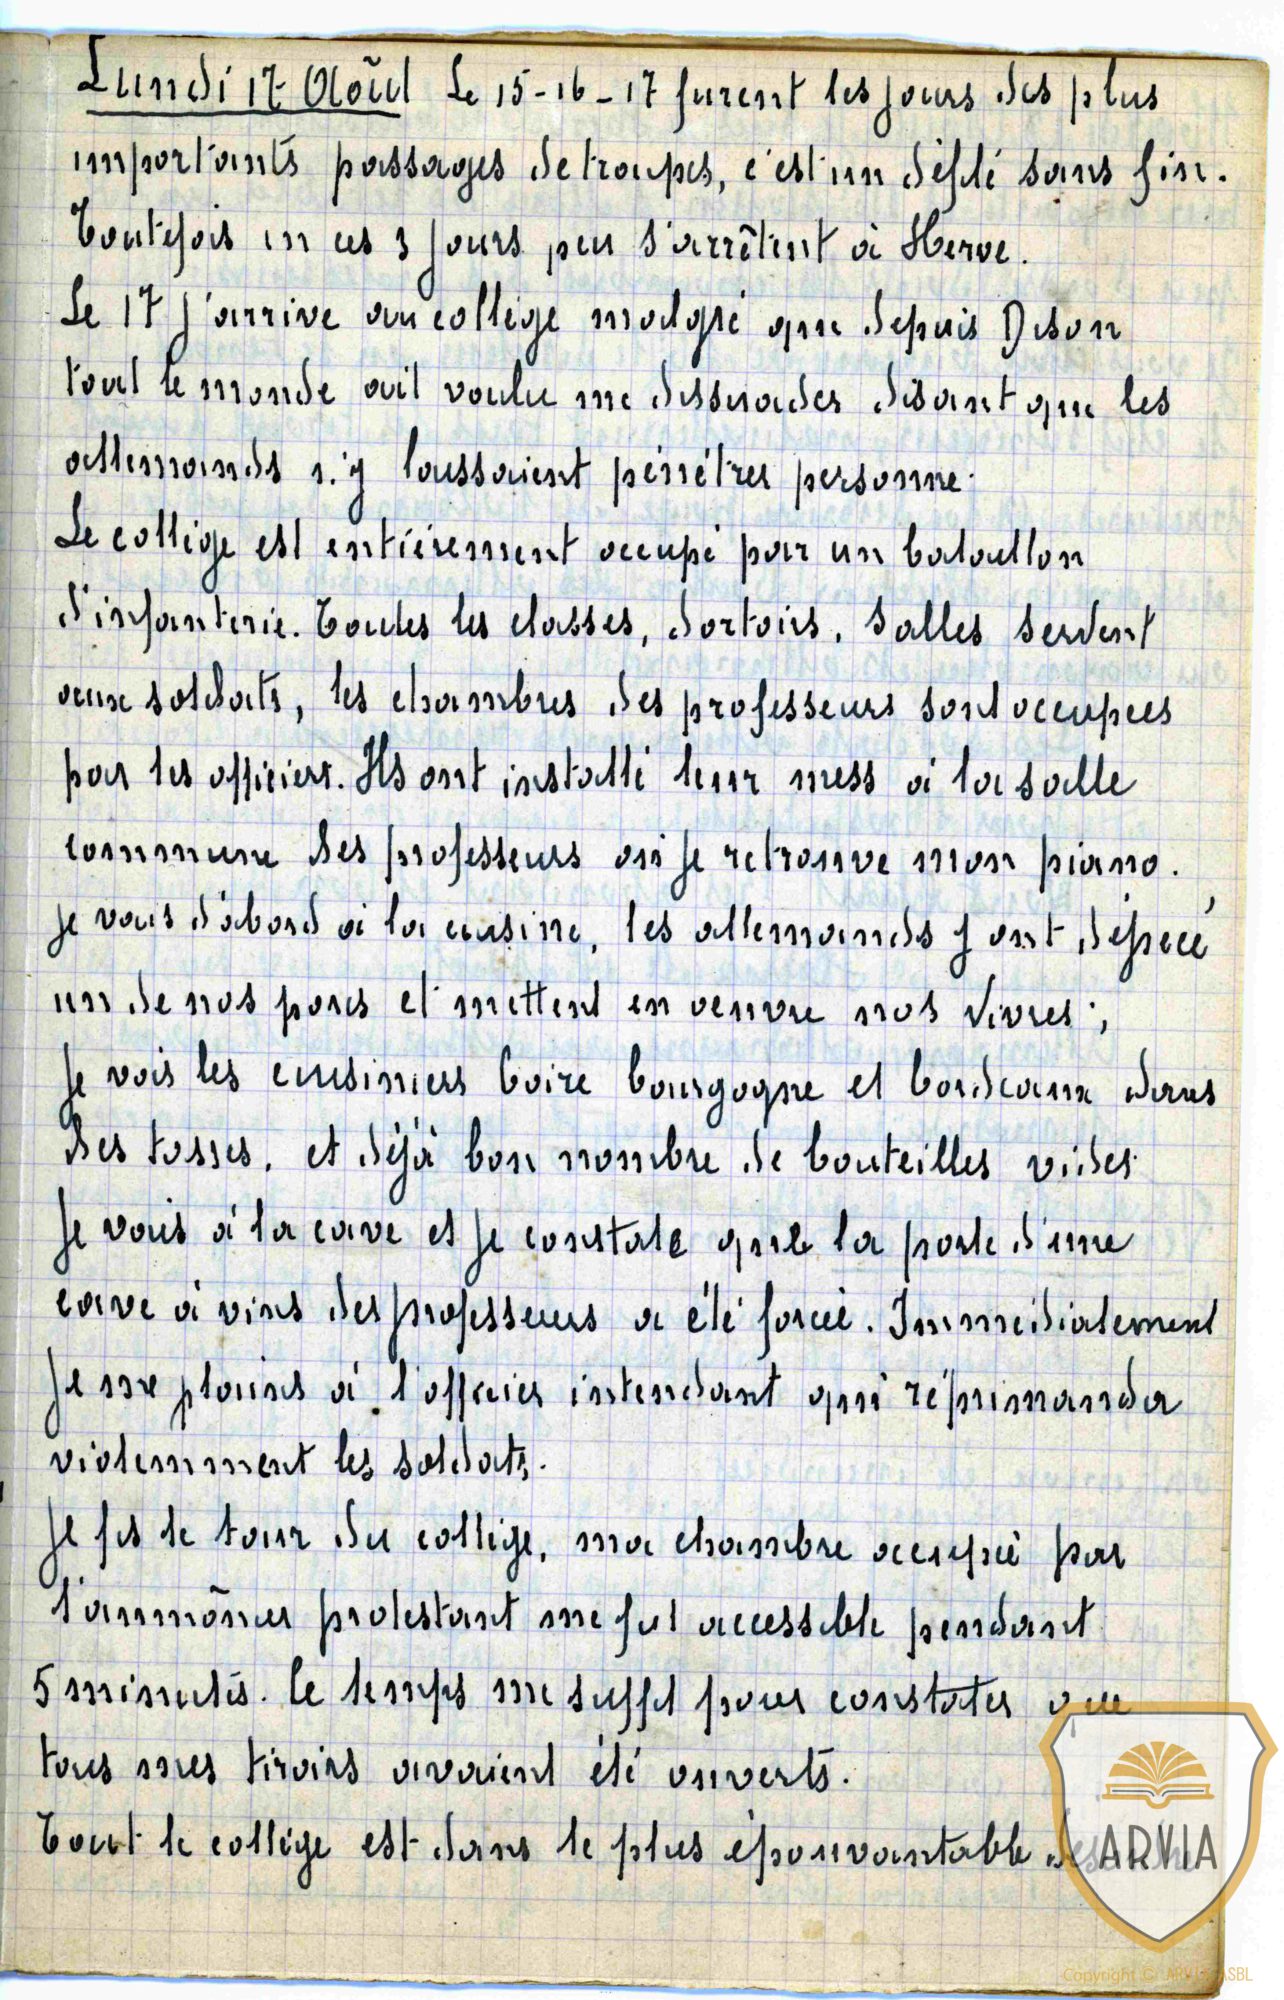 Lundi 17 Août Le 15-16-17 furent les jours des plus
importants passages de troupes, c'est un défilé sans fin.
Toutefois en ces 3 jours peu s'arrêtent à Herve.
Le 17 j'arrive au collège malgré que depuis Dison
tout le monde ait voulu me dissuader disant que les
allemands n'y laissaient pénétrer personne.
Le collège est entièrement occupé par un bataillon
d'infanterie. Toutes les classes, dortoirs, salles servent
aux soldats, les chambres des professeurs sont occupées
par les officiers. Ils ont installé leur mess à la salle
commune des professeurs où je retrouve mon piano.
Je vais d'abord à la cuisine, les allemands y ont dépecé
un de nos porcs et mettent en oeuvre nos vivres ;
Je vois les cuisiniers boire bourgogne et bordeaux dans
des tasses, et déjà bon nombre de bouteilles vides
Je vais à la cave et je constate que la porte d'une
cave à vins des professeurs a été forcée. Immédiatement
Je me plains à l'officier intendant qui réprimanda
violemment les soldats.
Je fis le tour du collège, ma chambre occupée par
l'aumônier protestant me fut accessible pendant
5 minutes. Ce temps me suffit pour constater que
tous mes tiroirs avaient été ouverts.
Tout le collège est dans le plus épouvantable désordre
ARVIA
Copyright © ARVIA ASBL